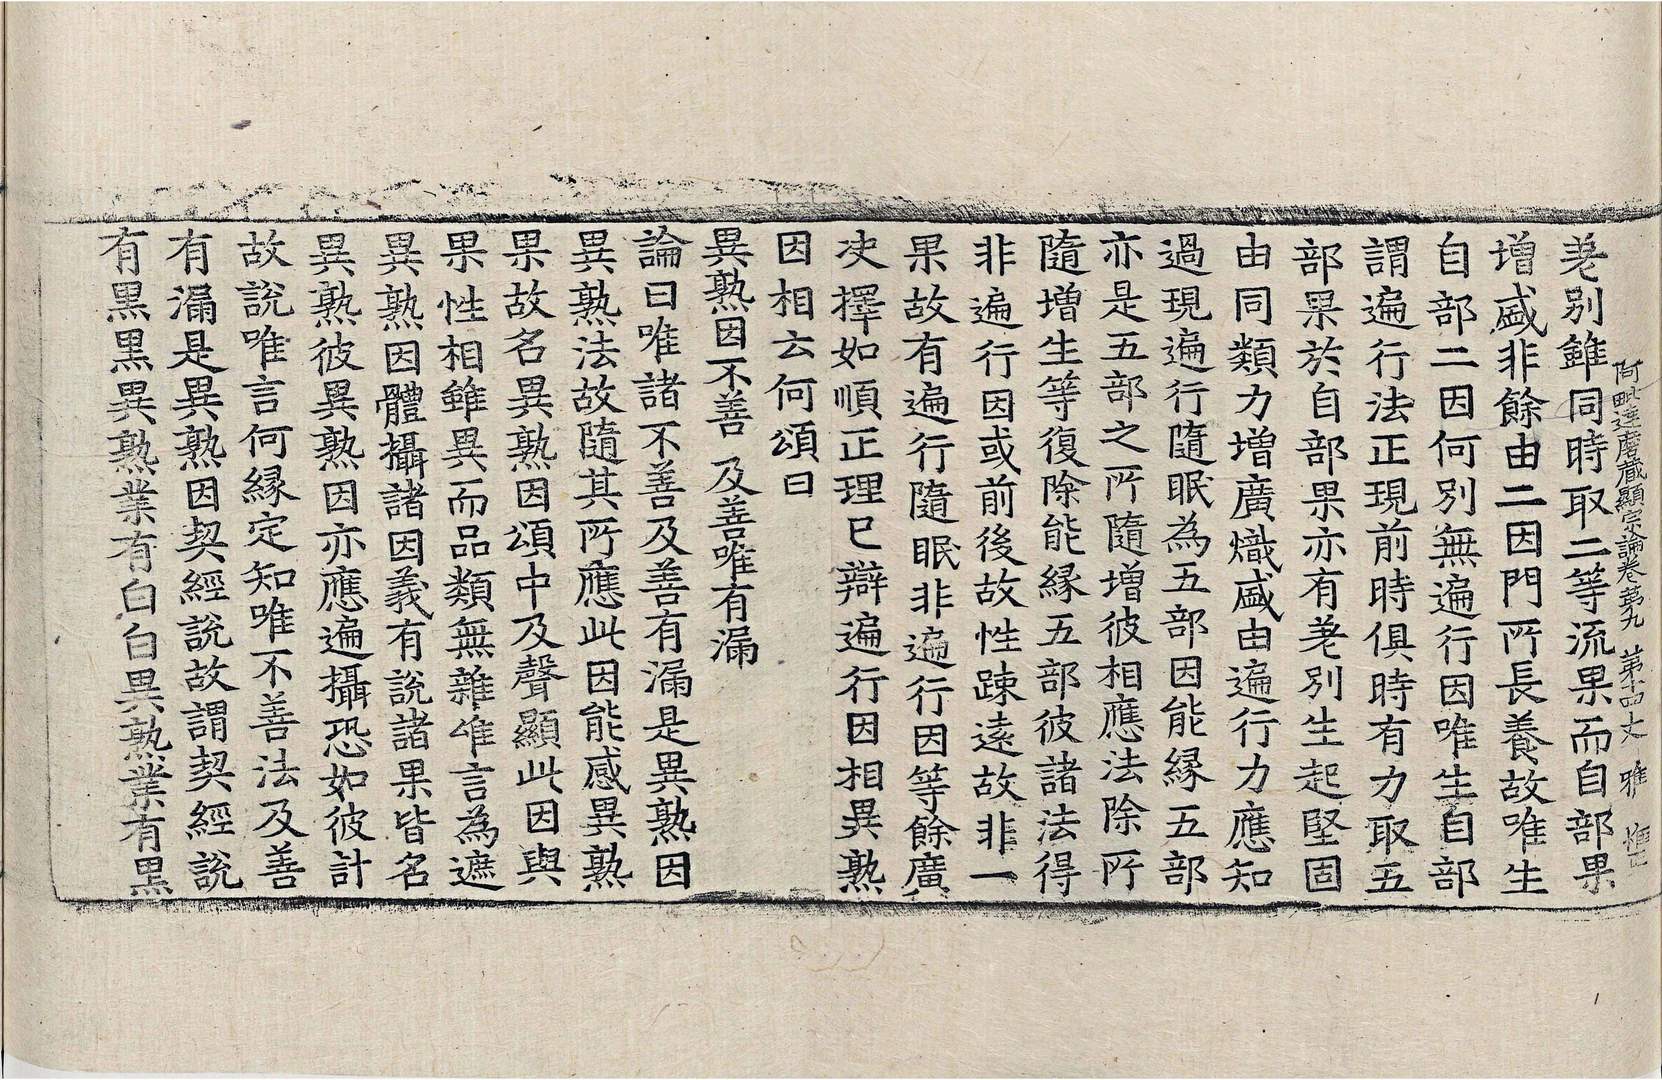 阿毗達磨藏顯宗論卷第九　第十四丈　雅
差別雖同時取二等流果而自部果
增盛非餘由二因門所長養故唯生
自部二因何別無遍行因唯生自部
謂遍行法正現前時俱時有力取五
部果於自部果亦有差別生起堅固
由同類力增廣熾盛由遍行力應知
過現遍行隨眠為五部因能緣五部
亦是五部之所隨增彼相應法除所
隨增生等復除能緣五部彼諸法得
非遍行因或前後故性疎遠故非一
果故有遍行隨眠非遍行因等餘廣
決擇如順正理已辯遍行因相異熟
因相云何頌曰
異熟因不善　及善唯有漏
論曰唯諸不善及善有漏是異熟因
異熟法故隨其所應此因能感異熟
果故名異熟因頌中及聲顯此因與
果性相雖異而品類無雜唯言為遮
異熟因體攝諸因義有說諸果皆名
異熟彼異熟因亦應遍攝恐如彼計
故說唯言何緣定知唯不善法及善
有漏是異熟因契經說故謂契經說
有黑黑異熟業有白白異熟業有黑